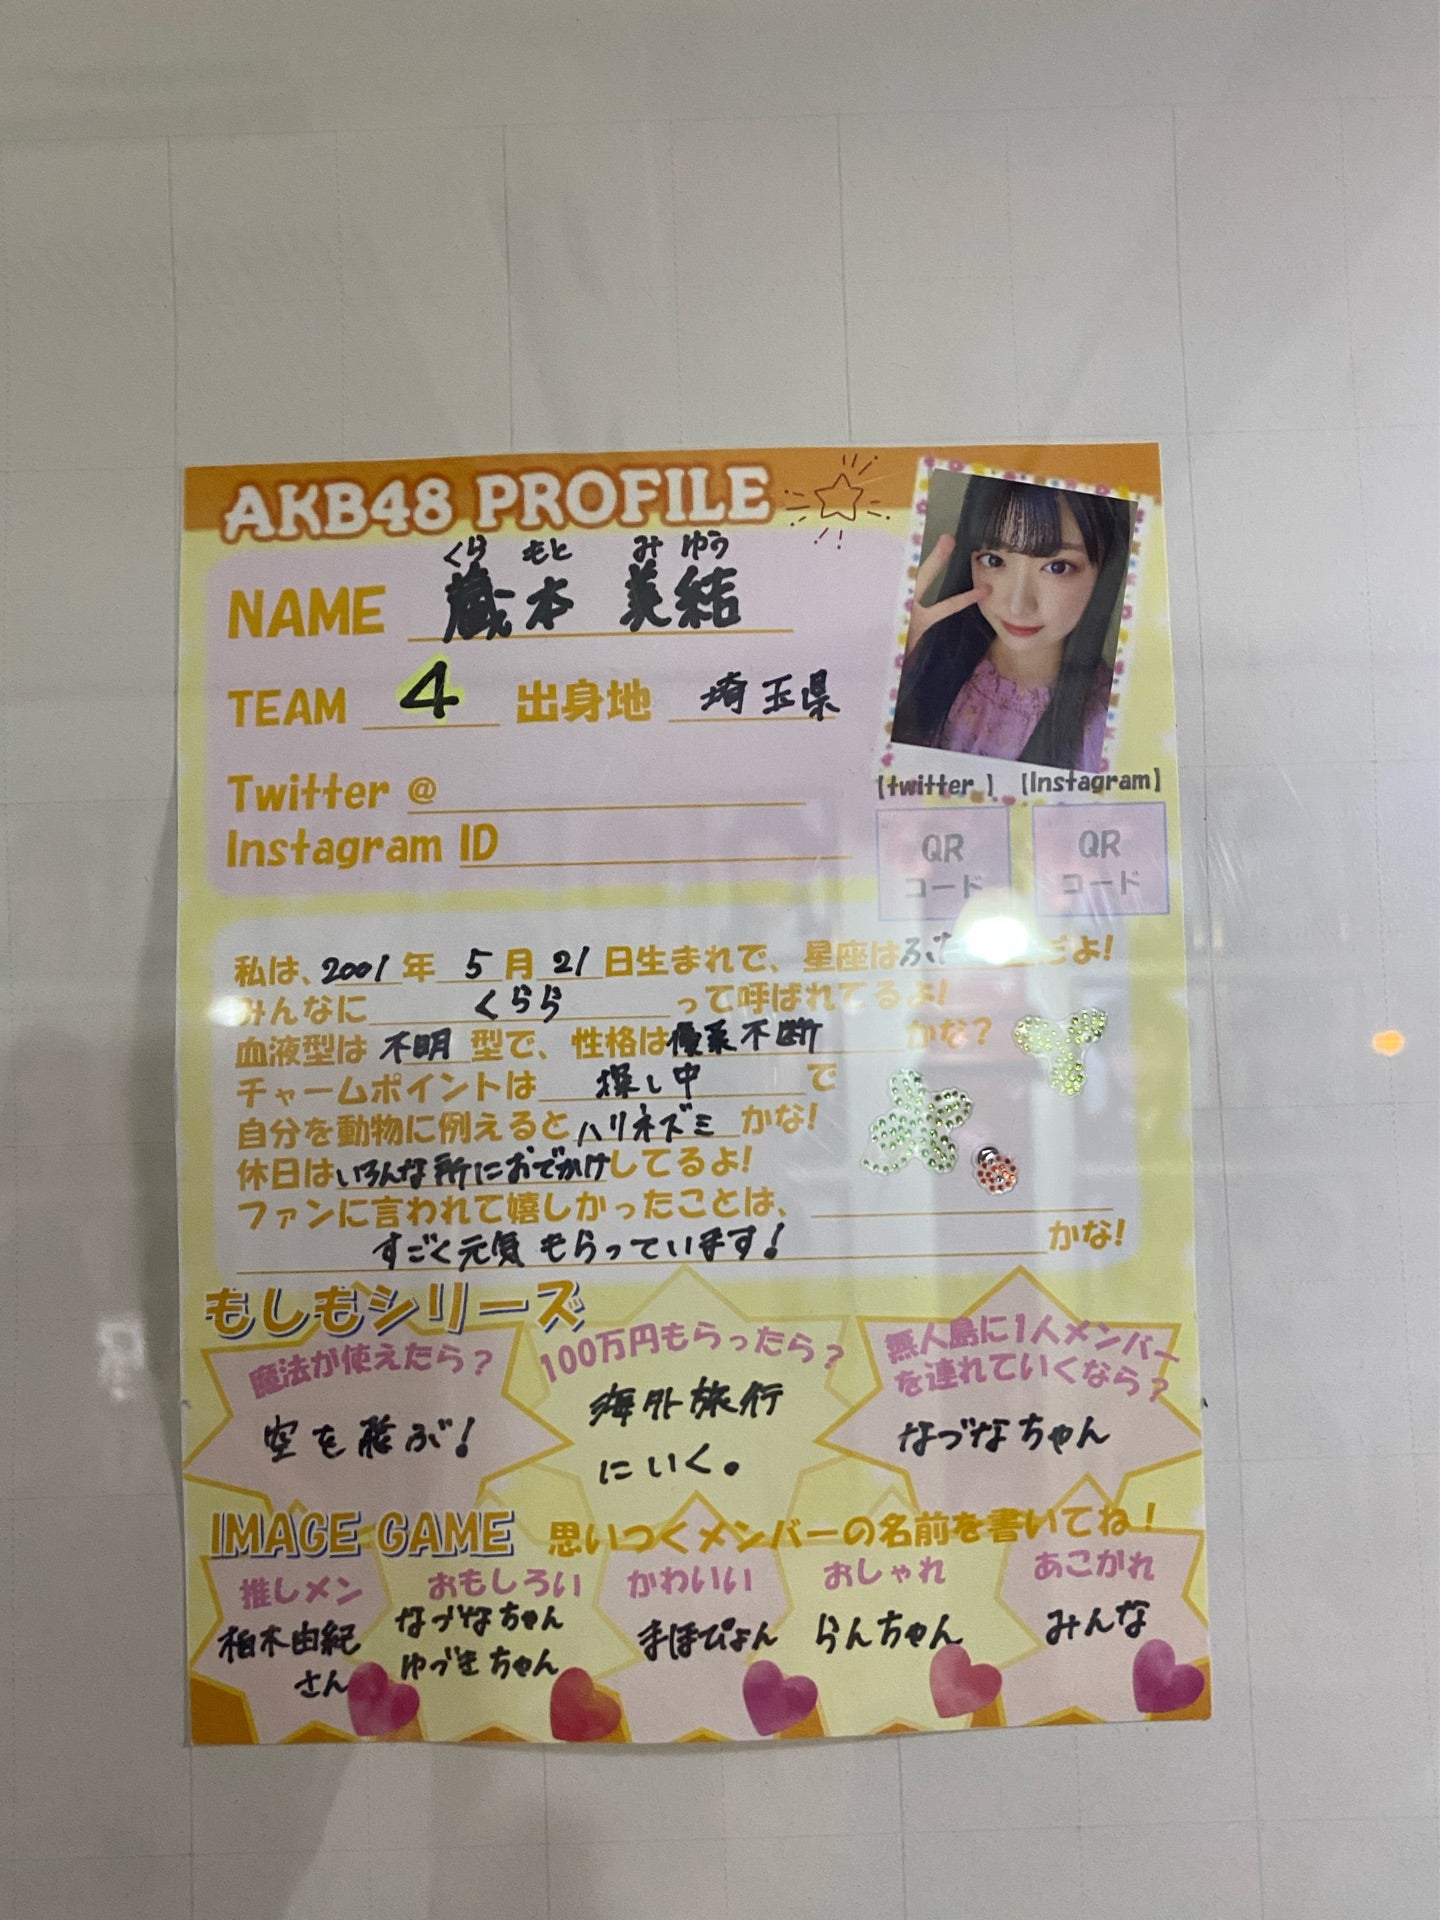 AKB48 PROFILE
くらもと みゆう
NAME 蔵本 美結
TEAM 4 出身地 埼玉県
Twitter @
Instagram ID
【twitter】 【Instagram】
QR
コード
QR
コード
私は、2001年 5月21日生まれで、星座はふた だよ!
みんなに くらら って呼ばれてるよ!
血液型は 不明 型で、性格は優柔不断 かな?
チャームポイントは 探し中 で
自分を動物に例えると ハリネズミ かな!
休日はいろんな所におでかけしてるよ!
ファンに言われて嬉しかったことは、
すごく元気もらっています! かな!
もしもシリーズ
魔法が使えたら?
空を飛ぶ!
100万円もらったら?
海外旅行
にいく。
無人島に1人メンバー
を連れていくなら?
なづなちゃん
IMAGE GAME 思いつくメンバーの名前を書いてね!
推しメン
柏木由紀
さん
おもしろい
なづなちゃん
ゆづきちゃん
かわいい
まほぴょん
おしゃれ
らんちゃん
あこがれ
みんな